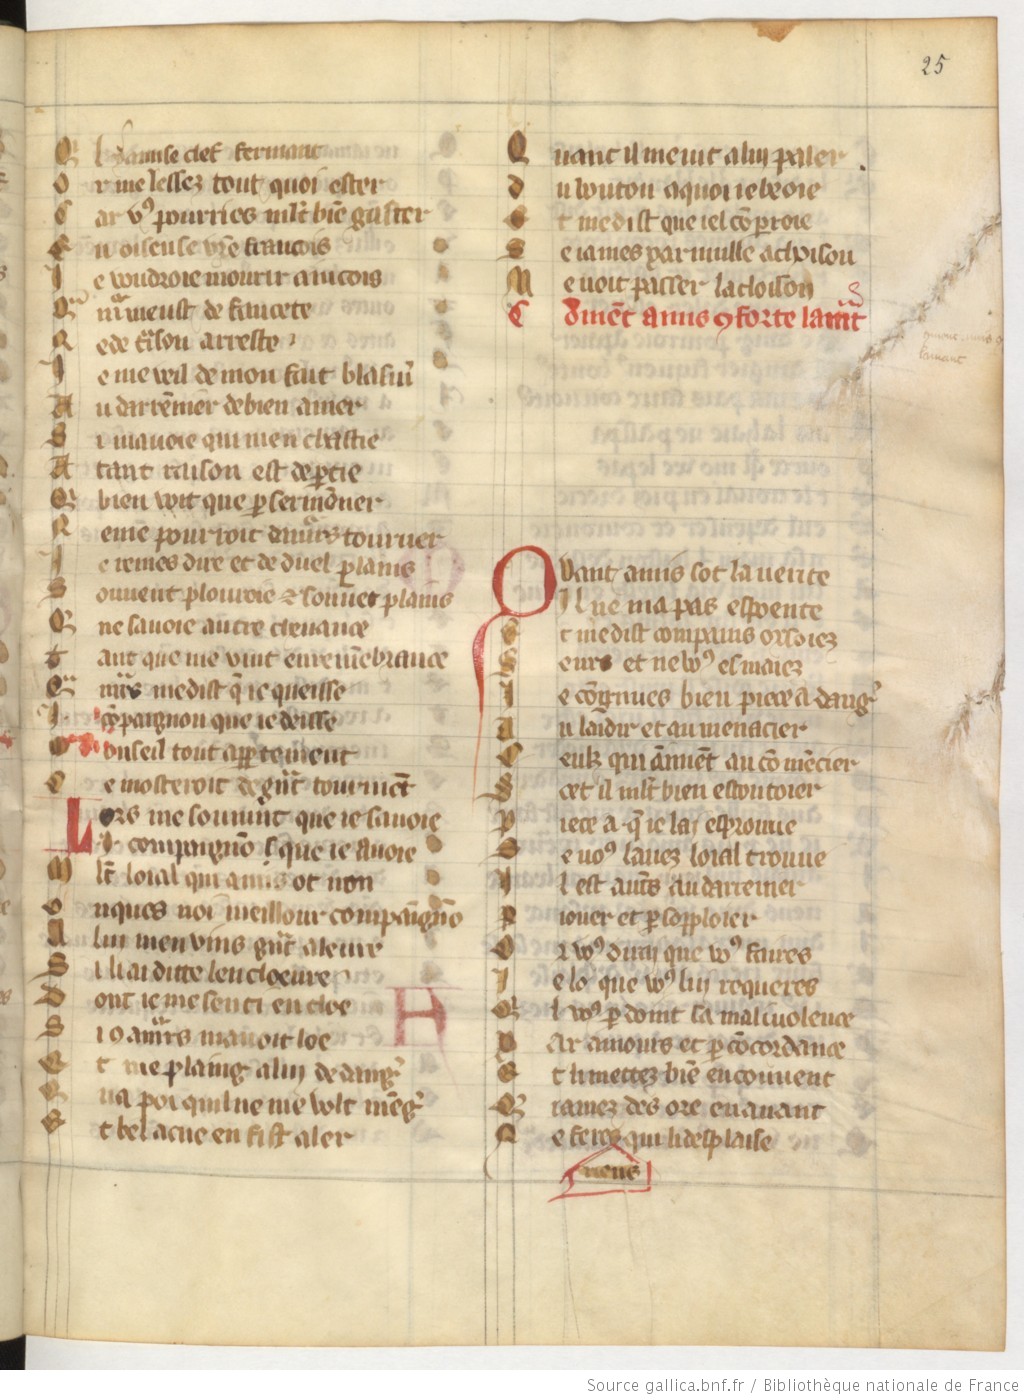 25
Or me lessez tout quoi ester
Car v9 pourries ml't bie᷑ gaster
En oiseuse vr̃e francois
Je voudroie mourir aincois
Qu'am's meust de faucete
Ne de t̃ison arreste
Je me veil de mon fait blasm̃
Au darrenier de bien amer
Si m'avoie qui men chastie
Atant raison est de ptie
Q bien voit que p sermonner
Ne me pourroit dam's tourner
Je remes dire et de duel plains
Souvent plouroie et souvet plains
Que ne savoie autre chevance
tant que me vint en remebrance
Qu am's me dist q̃ ie queisse
J cõpaignon que ie deisse
Conseil tout aptement
Ce mosteroit de gnt tourmet
Lors me souvint que ie savoie
J compaignõ  que ie avoie
Ml't loial qui amis ot non
Onques noi meillour compaignõ
A lui men vins gnt aleure
Si li ai ditte lencloeure
Dont ie me senti encloe
Si 9 am's mavoit loe
Et me plaing a luy de dang̃
Qua poi quil ne me volt meg̃
Et bel acue en fist aler
Quant il me vit a luy paler
du bouton a quoi ie beoie
Et me dist que iel cõproie
Se iames par nulle achoison
Me voit passer la cloison
Comẽt amis 9forte lamãt
Quant amis sot la verite
Il ne ma pas espoente
Et me dist compains or soiez
Seurs et ne v9 esmaiez
Je cõgnues bien piece a dang̃
Au laidir et au menacier
Ceulz qui aiment au cõmẽcier
Scet il ml't bien espoutoier
Piece a q̃ ie lay esprouve
Se vo9 lavez loial trouve
Il est aut's au darrenier
Or v9 diray que v9 faires
Je lo que v9 luy requeres
Ql v9 pdoint sa malivolence
Par amours et p cõcordance
Et li mettez bie᷑ en couvent
Q iamez des ore en avant
Ne ferez qui li desplaise
Source gallica.bnf.fr / Bibliothèque nationale de France